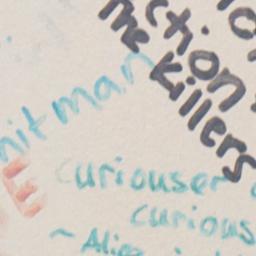 ction
The Killers
hitman
curiouser
curious
~ Alice